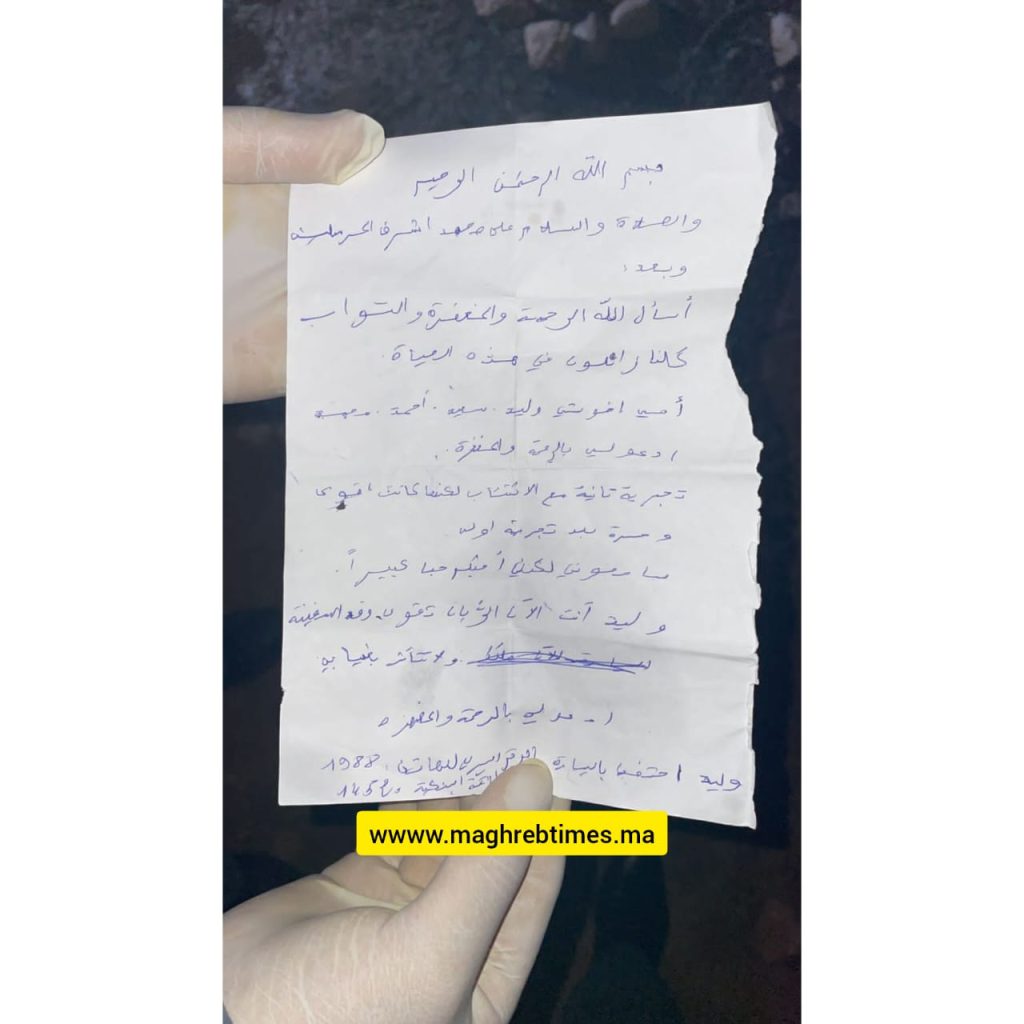 بسم الله الرحمٰن الرحيم
والصلاة والسلام على محمد اشرف المرسلين
وبعد:
أسأل الله الرحمة والمغفرة والتواب
كلنا زائلون في هذه الحياة.
أمي اخوتي وليد. أحمد.
ادعو لي بالرحمة والمغفرة.
تجربة تانية مع الاكتئاب لكنها كانت اقوى
ومرة بعد تجربة اولى
سامحوني لكني أحبكم حبا كبيراً.
وليد أنت الآن الربان تقود دفة السفينة
ولا تتأثر بغيابي
ادعو لي بالرحمة والمغفرة
وليد احتفظ بالسيارة الرقم السري للهاتف 1988
البنكية 1458
www.maghrebtimes.ma